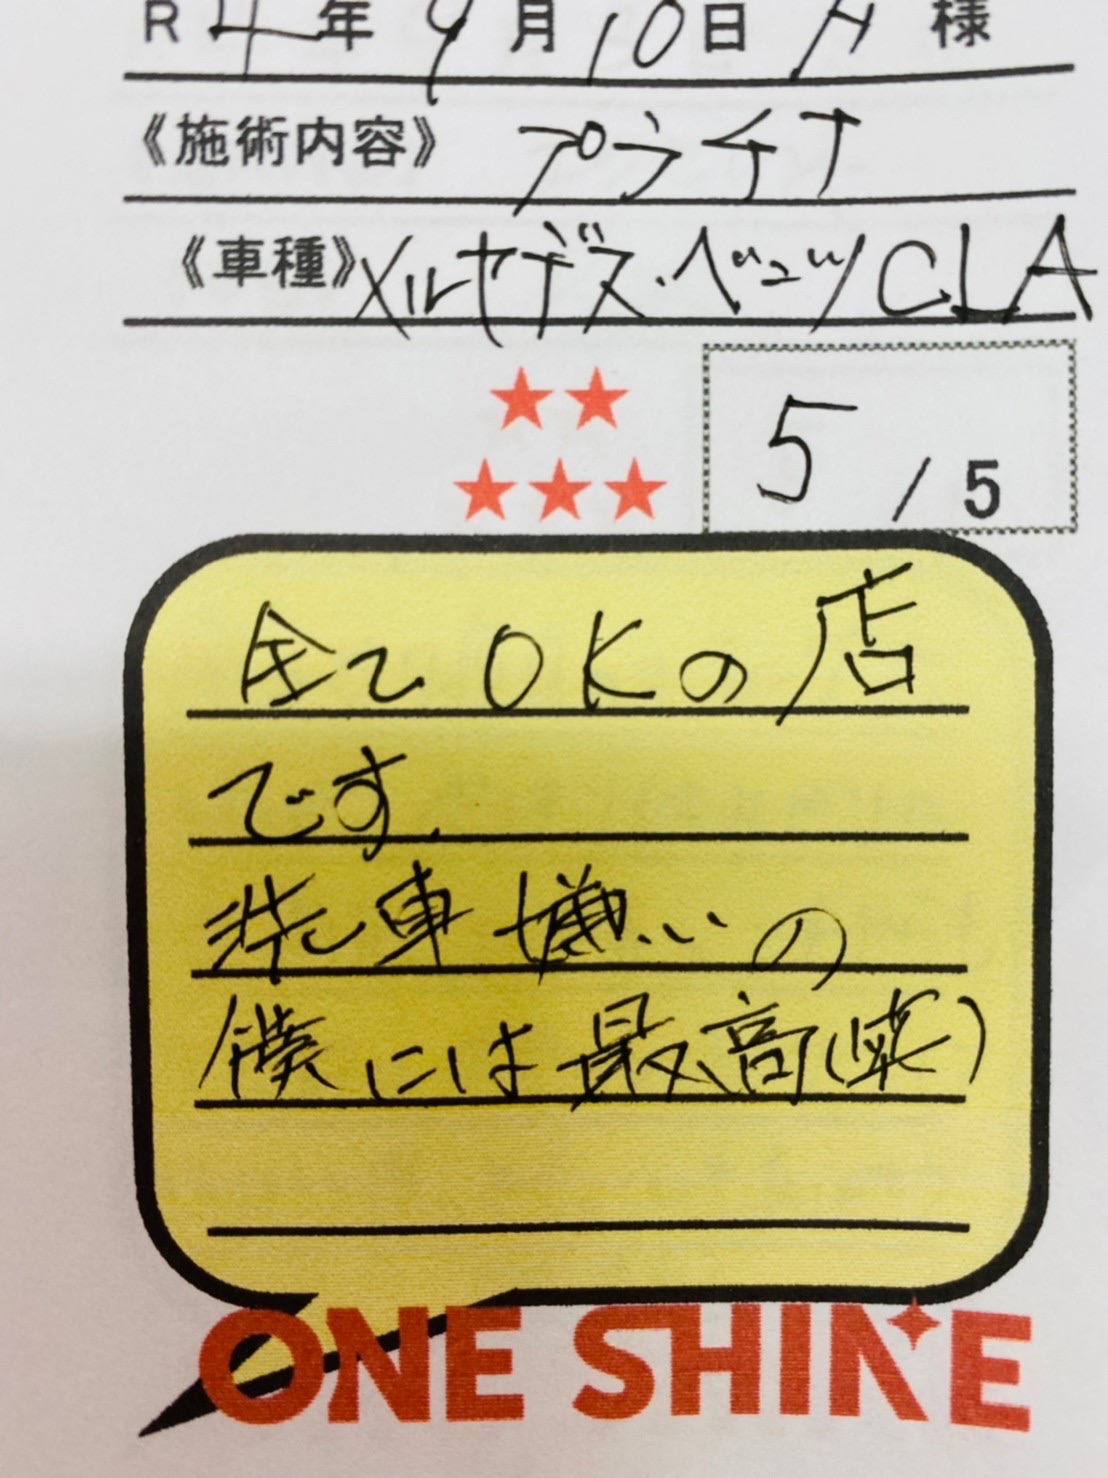 R4年9月10日 A 様
《施術内容》 プラチナ
《車種》メルセデス・ベンツCLA
5 / 5
全てOKの店
です.
洗車嫌いの
僕には最高(笑)
ONE SHINE